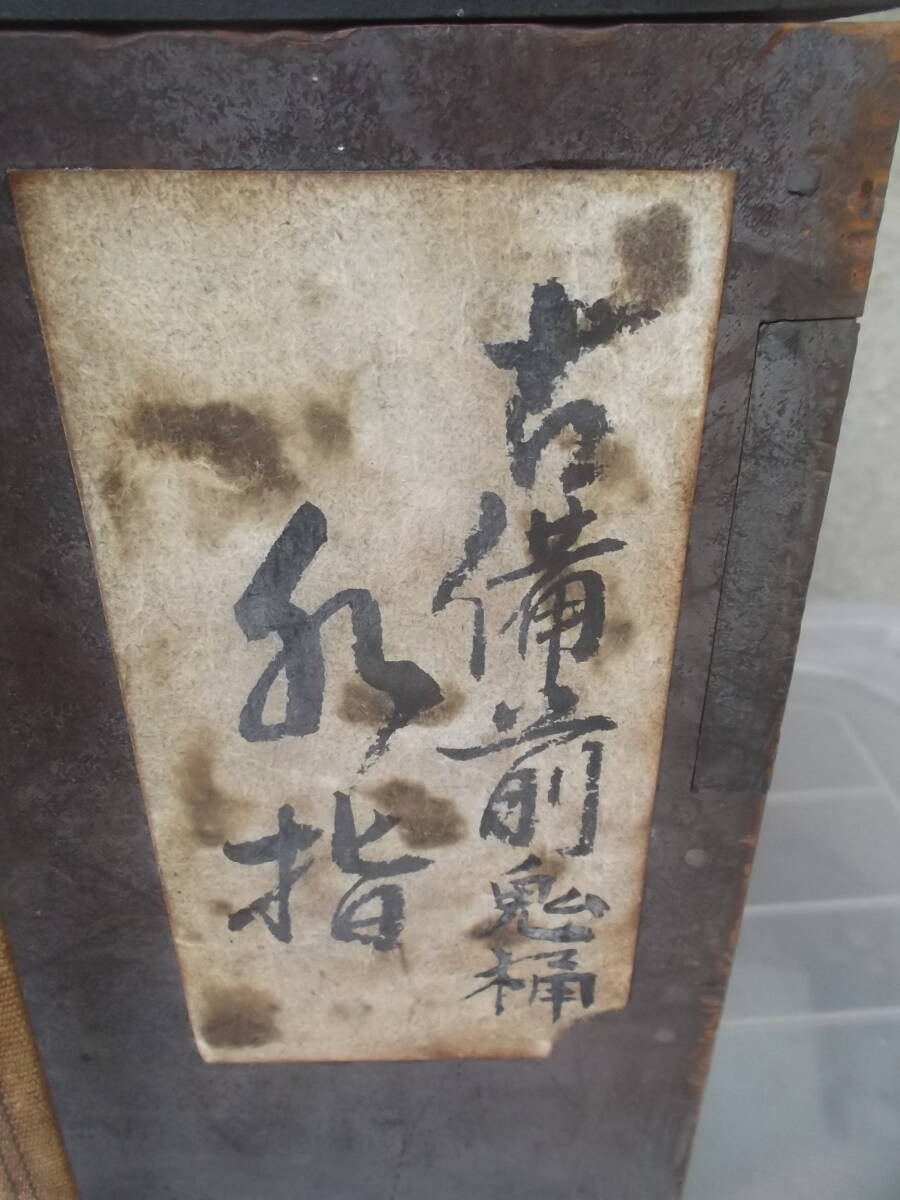 古備前鬼桶
水指